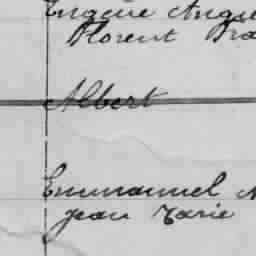 Eugène Augu
Florent Fra
Albert
Emmanuel A
Jean Marie